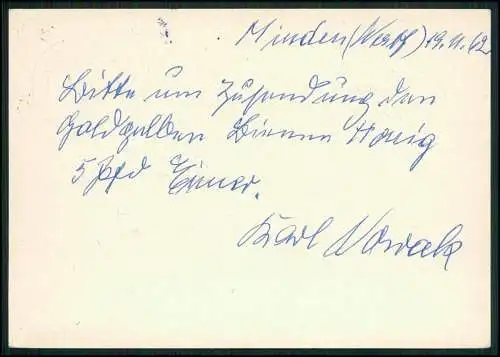 Minden (Westf) 19.11.62
Bitte um Zusendung den
Goldgelben Bienen Honig
5 Pfd Eimer.
Karl Nowak